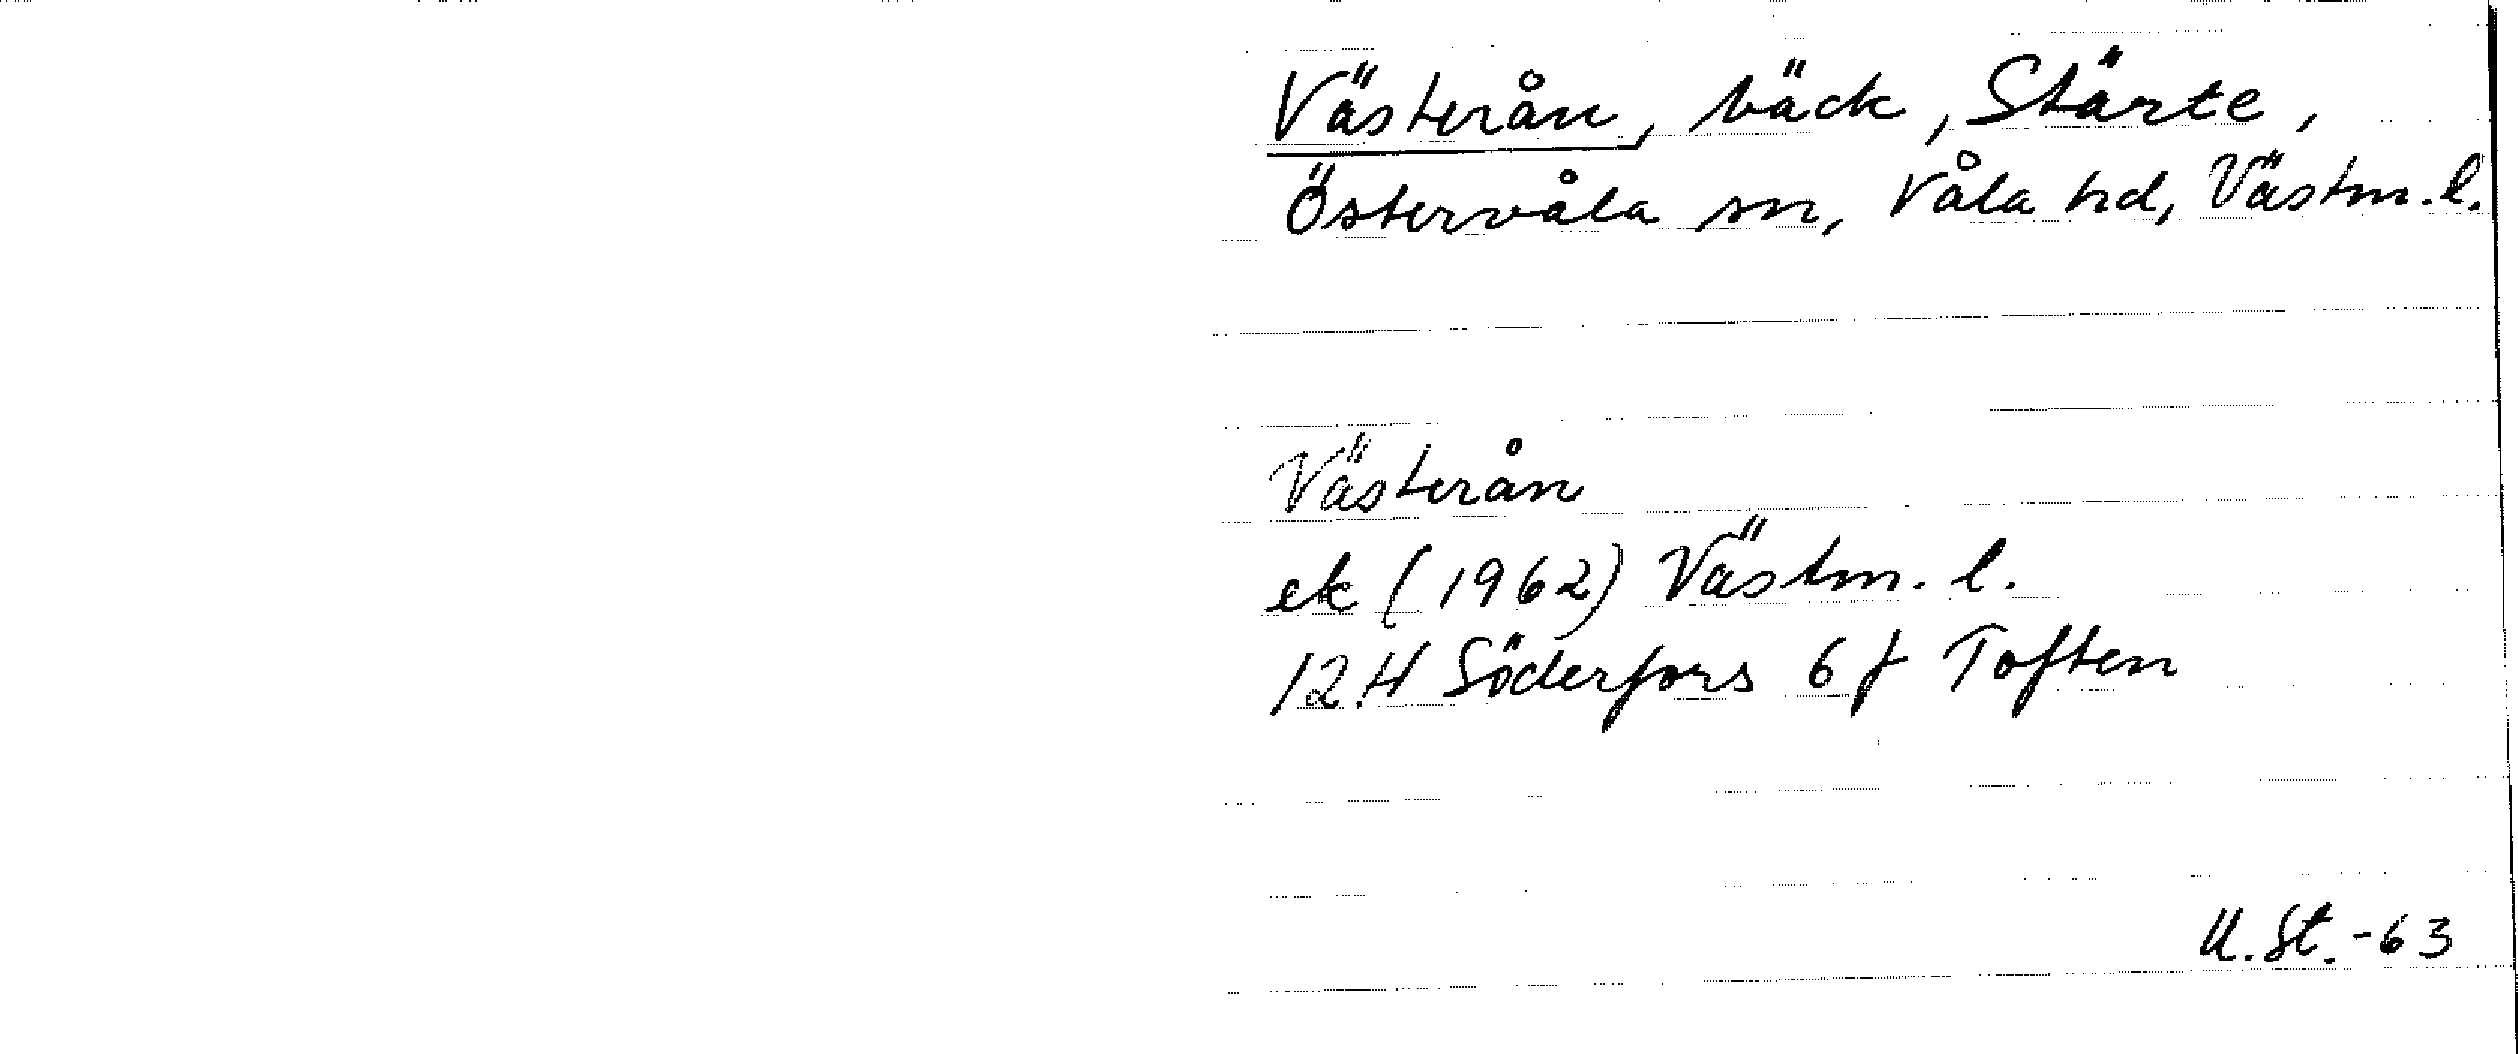 Västerån, bäck, Stärte,
Östervåla sn, Våla hd, Västm. l.
Västerån
ek (1962) Västm. l.
12 H Söderfors 6 f Toften
U. St. -63